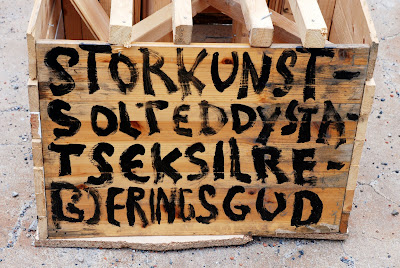 STORKUNST-
SOLTEDDYSTA-
TSEKSILRE-
(G)ERINGSGUD